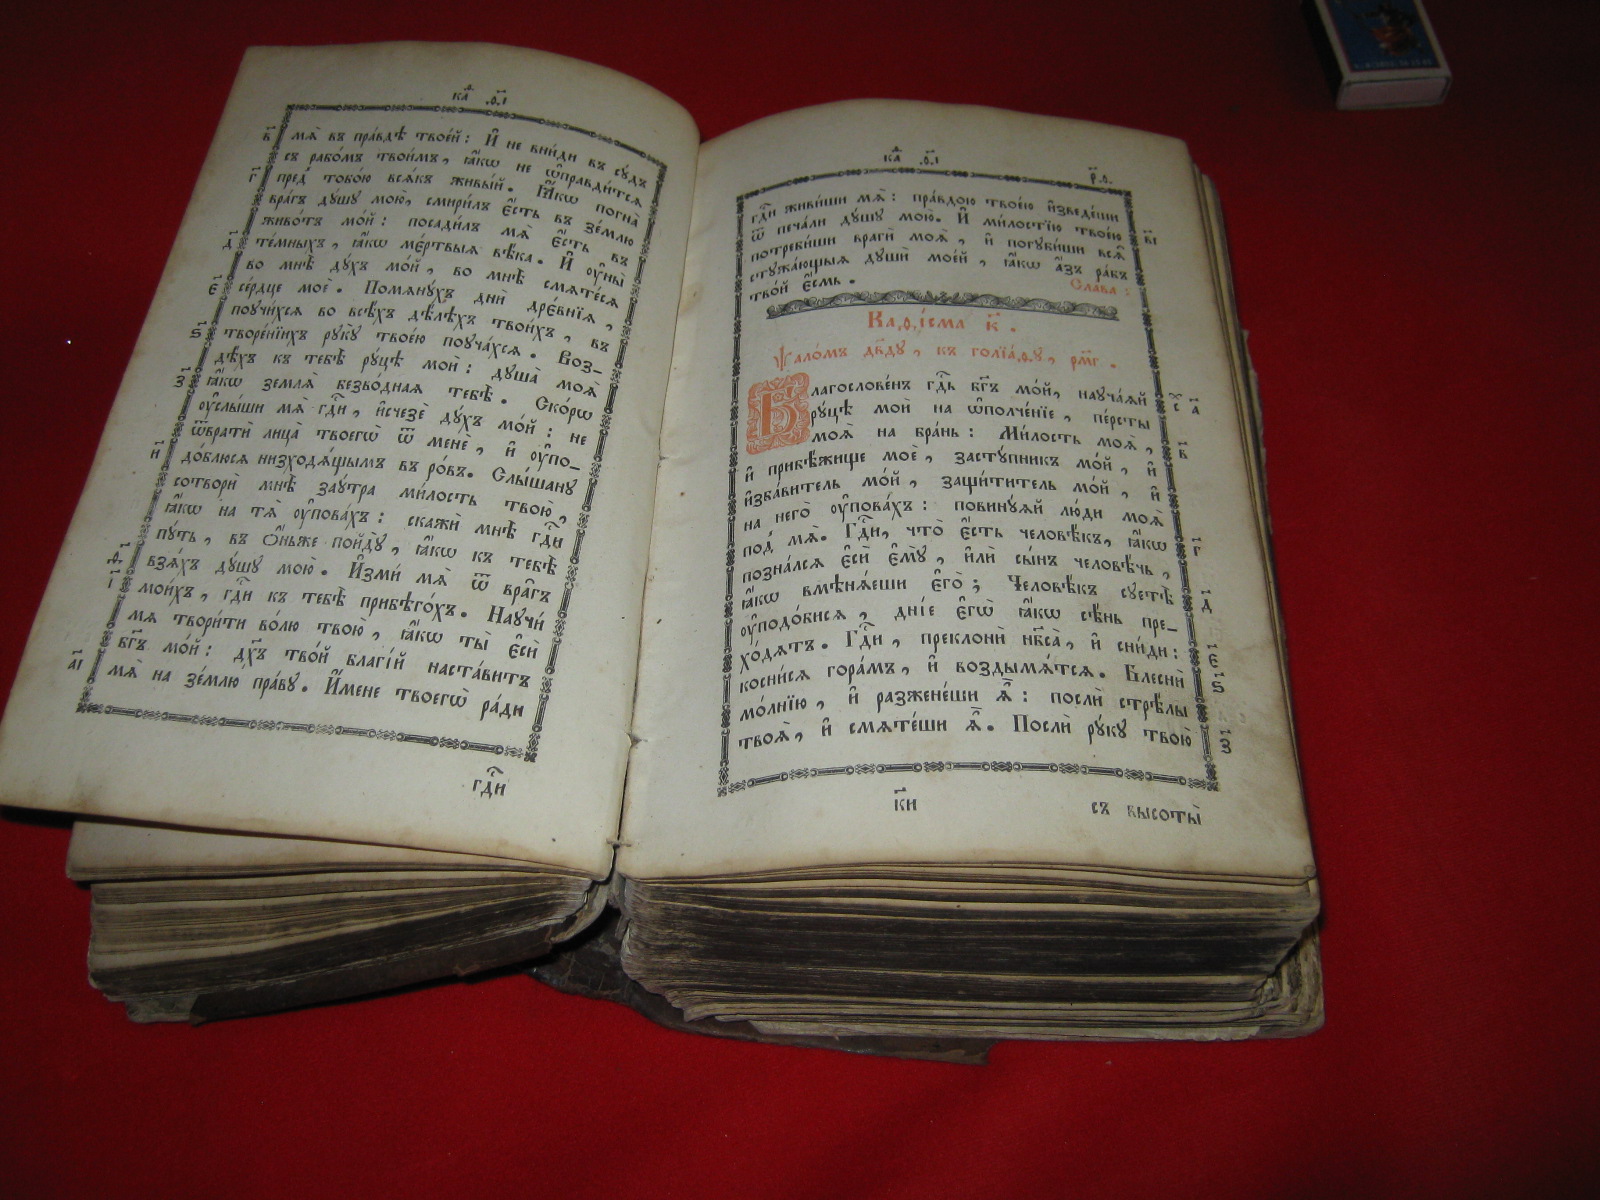 ка́ѳ. ѳ҃і
мѧ̀ въ пра́вдѣ твое́й: И҆ не вни́ди въ сꙋ́дъ
съ рабо́мъ твои́мъ, ꙗ҆́кѡ не ѡ҆правди́тсѧ
пред̾ тобо́ю всѧ́къ живы́й. Ꙗ҆́кѡ погна̀
вра́гъ дꙋ́шꙋ мою̀, смири́лъ є҆́сть въ зе́млю
живо́тъ мо́й: посади́лъ мѧ̀ є҆́сть въ
те́мныхъ, ꙗ҆́кѡ ме́ртвыѧ вѣ́ка. И҆ ᲂу҆ны̀
во мнѣ̀ дꙋ́хъ мо́й, во мнѣ̀ смѧте́сѧ
се́рдце моѐ. Помѧнꙋ́хъ дни̑ дре́внїѧ,
поꙋчи́хсѧ во всѣ́хъ дѣ́лѣхъ твои́хъ, въ
творе́нїихъ рꙋкꙋ̀ твоє́ю поꙋча́хсѧ. Воз-
дѣ́хъ къ тебѣ̀ рꙋ́цѣ мои̑: дꙋша̀ моѧ̀
ꙗ҆́кѡ землѧ̀ безво́днаѧ тебѣ̀. Ско́рѡ
ᲂу҆слы́ши мѧ̀ гдⷭ҇и, и҆счезѐ дꙋ́хъ мо́й: не
ѿвратѝ лица̀ твоегѡ̀ ѿ менѐ, и҆ ᲂу҆по-
до́блюсѧ низходѧ́щымъ въ ро́въ. Слы́шанꙋ
сотворѝ мнѣ̀ заꙋ́тра ми́лость твою̀,
ꙗ҆́кѡ на тѧ̀ ᲂу҆пова́хъ: скажѝ мнѣ̀ гдⷭ҇и
пꙋ́ть, въ ѻ҆́ньже пойдꙋ̀, ꙗ҆́кѡ къ тебѣ̀
взѧ́хъ дꙋ́шꙋ мою̀. И҆зми́ мѧ ѿ вра̑гъ
мои́хъ, гдⷭ҇и къ тебѣ̀ прибѣго́хъ. Наꙋчи́
мѧ твори́ти во́лю твою̀, ꙗ҆́кѡ ты̀ є҆сѝ
бг҃ъ мо́й: дх҃ъ тво́й благі́й наста́витъ
мѧ̀ на зе́млю пра́вꙋ. И҆́мене твоегѡ̀ ра́ди
в҃
г҃
д҃
є҃
ѕ҃
з҃
и҃
ѳ҃
і҃
а҃і
гдⷭ҇и
ка́ѳ. ѳ҃і
р҃ѳ.
гдⷭ҇и живи́ши мѧ̀: пра́вдою твое́ю и҆зведе́ши
ѿ печа́ли дꙋ́шꙋ мою̀. И҆ ми́лостїю твое́ю
потреби́ши врагѝ моѧ̑, и҆ погꙋби́ши всѧ̑
стꙋжа́ющыѧ дꙋшѝ мое́й, ꙗ҆́кѡ а҆́зъ ра́бъ
тво́й є҆́смь. Сла́ва:
в҃і
Каѳі́сма к҃.
Ѱало́мъ дв҃дꙋ, къ голїа́ѳꙋ, рм҃г.
Благослове́нъ гдⷭ҇ь бг҃ъ мо́й, наꙋча́ѧй
рꙋ́цѣ мои̑ на ѡ҆полче́нїе, пе́рсты
моѧ̑ на бра́нь: Ми́лость моѧ̀,
и҆ прибѣ́жище моѐ, застꙋ́пникъ мо́й, и҆
и҆зба́витель мо́й, защи́титель мо́й, и҆
на него̀ ᲂу҆пова́хъ: повинꙋ́ѧй лю́ди моѧ̑
под̾ мѧ̀. Гдⷭ҇и, что̀ є҆́сть человѣ́къ, ꙗ҆́кѡ
позна́лсѧ є҆сѝ є҆мꙋ̀, и҆лѝ сы́нъ человѣ́чь,
ꙗ҆́кѡ вмѣнѧ́еши є҆го̀; Человѣ́къ сꙋетѣ̀
ᲂу҆подо́бисѧ, дні́е є҆гѡ̀ ꙗ҆́кѡ сѣ́нь пре-
хо́дѧтъ. Гдⷭ҇и, преклонѝ нб҃са̀, и҆ сни́ди:
косни́сѧ гора́мъ, и҆ воздымѧ́тсѧ. Блеснѝ
мо́лнїю, и҆ разжене́ши ѧ҆̀: послѝ стрѣ́лы
твоѧ̑, и҆ смѧте́ши ѧ҆̀. Послѝ рꙋ́кꙋ твою̀
а҃
в҃
г҃
д҃
є҃
ѕ҃
з҃
к҃и
съ высоты̀